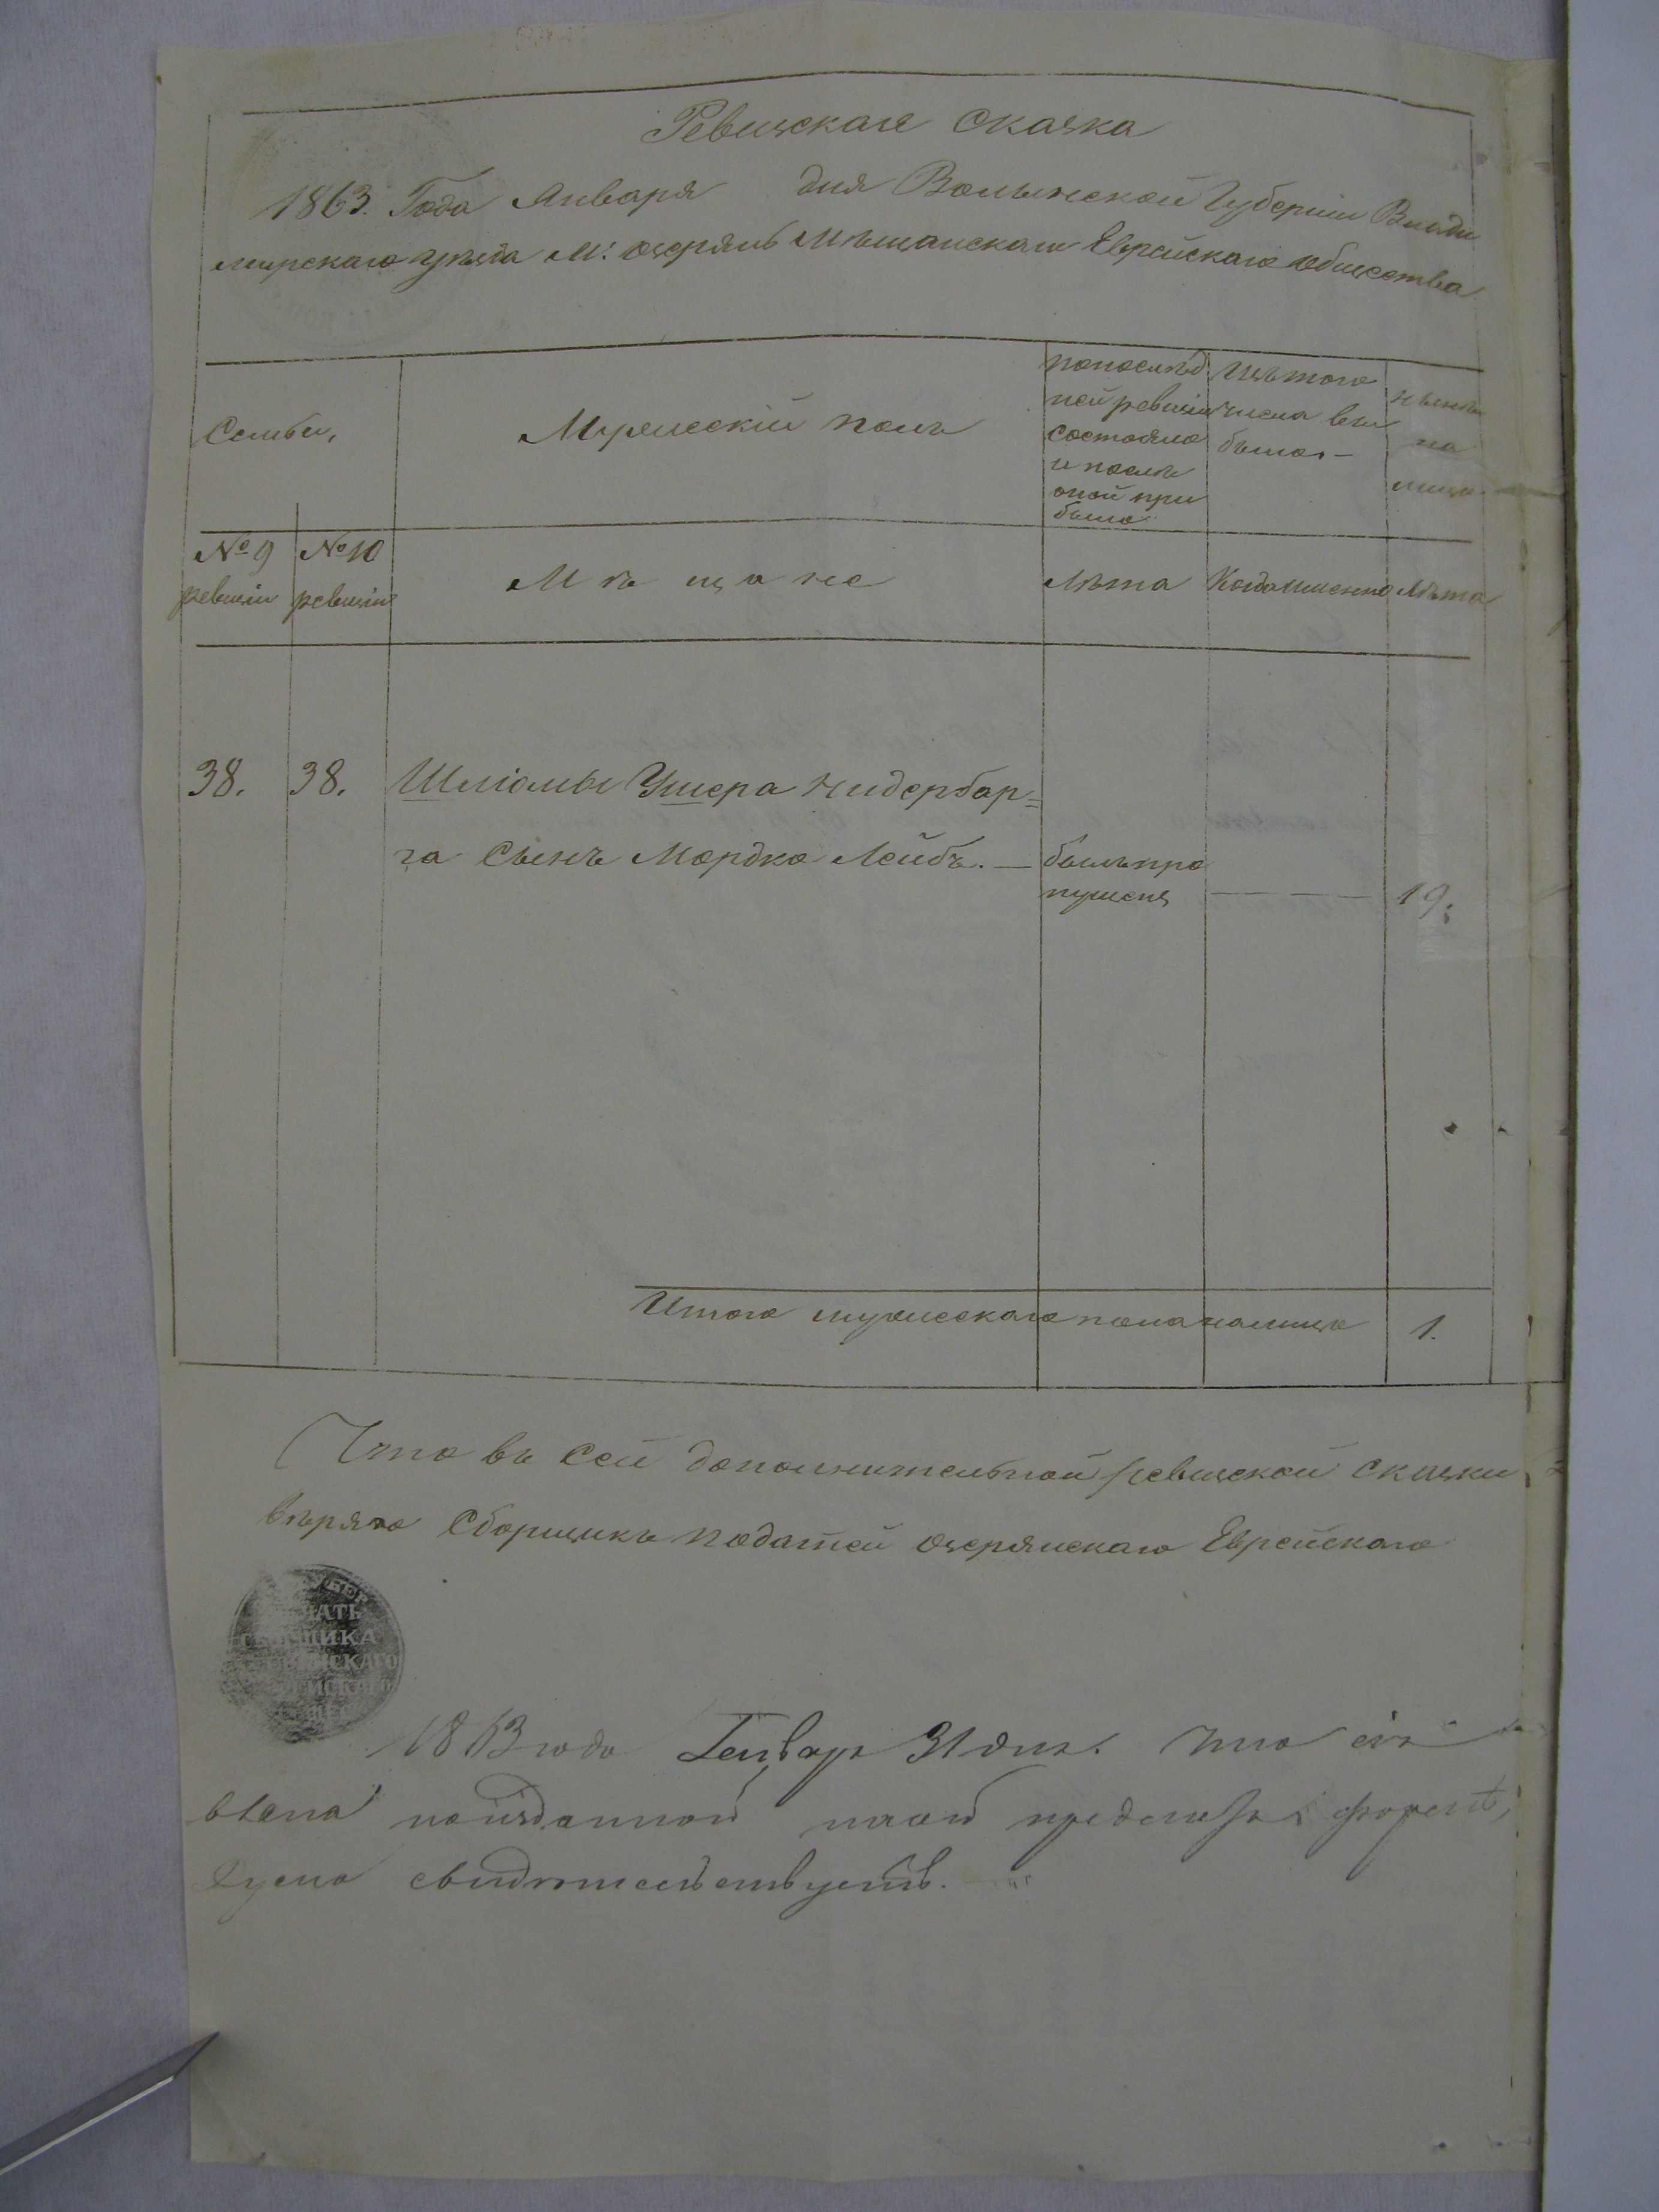 Ревизская Сказка
1863. Года Января дня Волынской Губернии Влади
мирскаго уезда М: Озерянъ Мѣщанскаго Еврейскаго общества
Семьи,
Мужескій полъ
попослѣд
ней ревизіи
состояло
и послѣ
оной при
было
Изъ того
числа вы
было. –
нынѣ
на
лицо
№ 9
ревизіи
№ 10
ревизіи
Мѣщане
Лѣта
Когда именно
Лѣта
38. 38. Шліомы Ушера Нидербар=
га Сынъ Мордко Лейбъ. —
былъ про
пущенъ
19.
Итого мужескаго пола налицо 1.
Что въ Сей дополнительной ревизской сказки
вѣрно Сборщикъ податей Озерянскаго Еврейскаго
ГУБЕР
ЧАТЬ
ЩИКА
НСКАГО
ЕЙСКАГО
1863 года Генваря 31 дня. Что сія
по изданной на сей предметъ формѣ,
Дума свидѣтельствуетъ.